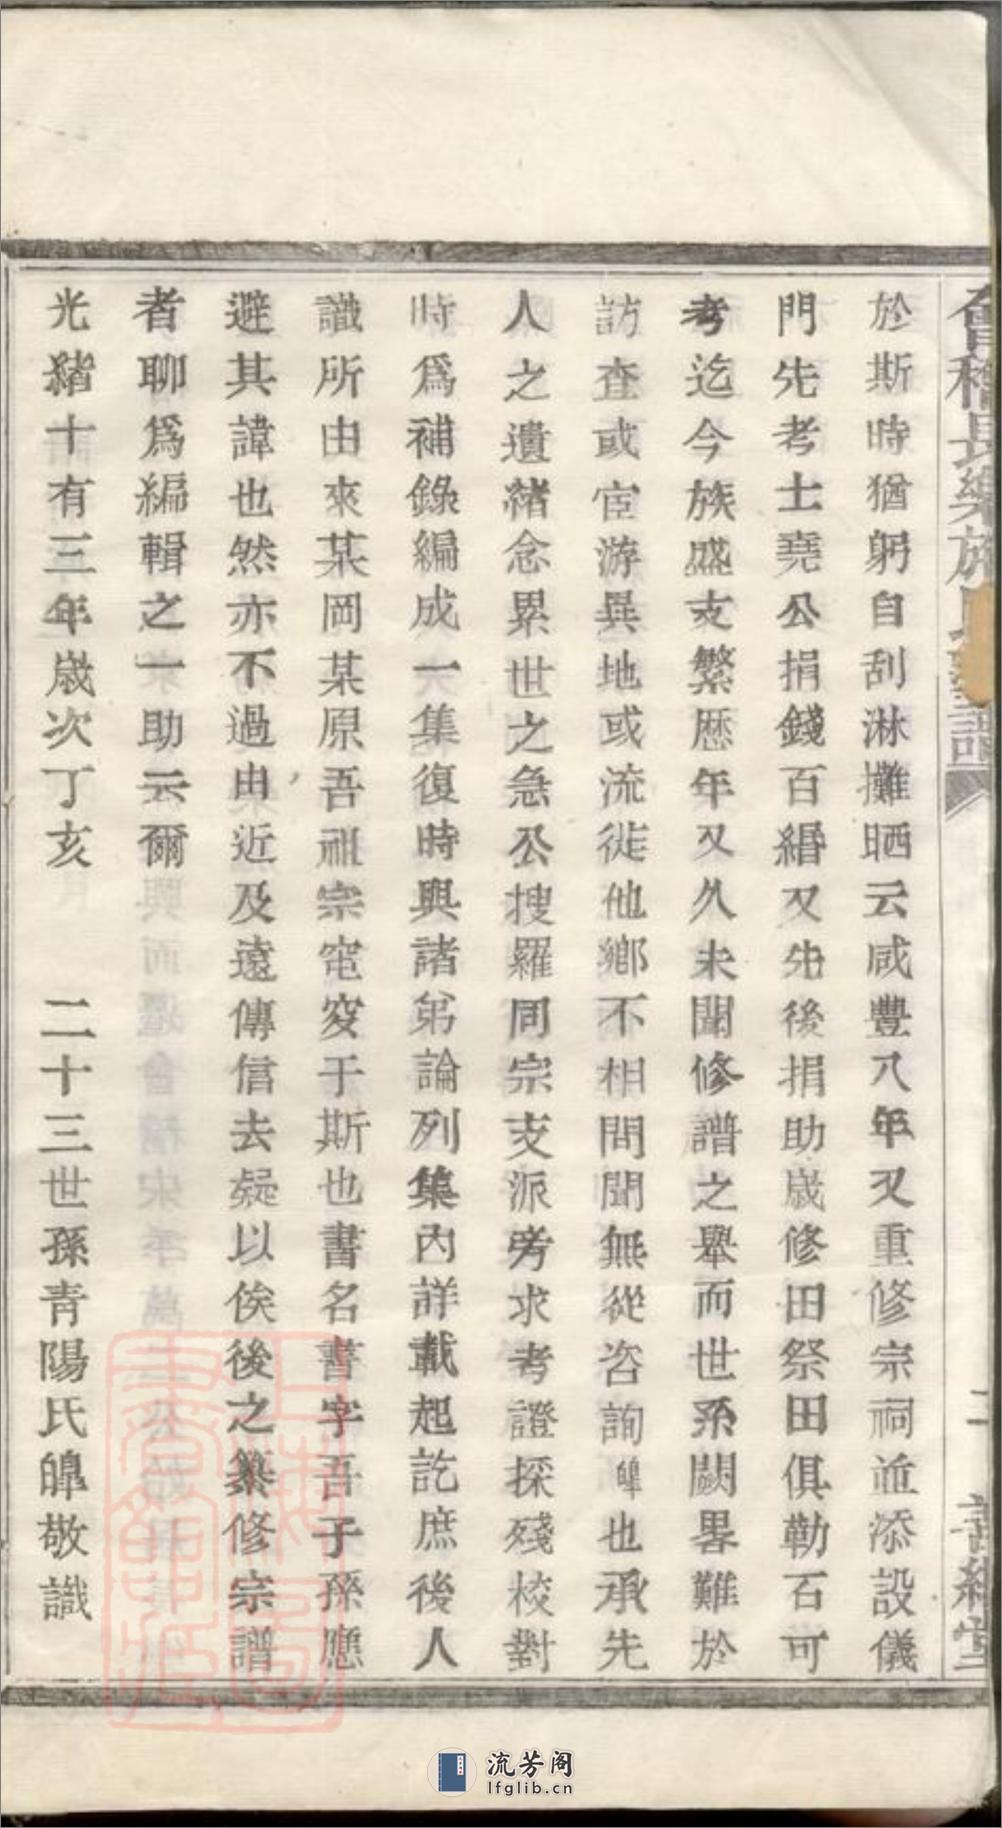 會稽長樂施氏宗譜
二
善繼堂
於斯時猶躬自刮淋攤晒云咸豐八年又重修宗祠並添設儀
門先考士堯公捐錢百緡又先後捐助歲修田祭田俱勒石可
考迄今族盛支繁歷年又久未聞修譜之舉而世系闕畧難於
訪查或宦游異地或流徙他鄉不相問聞無從咨詢皥也承先
人之遺緒念累世之急公搜羅同宗支派旁求考證採殘校對
時爲補錄編成一集復時與諸弟論列集內詳載起訖庶後人
識所由來某岡某原吾祖宗窀穸于斯也書名書字吾子孫應
避其諱也然亦不過由近及遠傳信去疑以俟後之纂修宗譜
者聊爲編輯之一助云爾
光緒十有三年歲次丁亥　二十三世孫青陽氏皥敬識
流芳阁
lfglib.cn